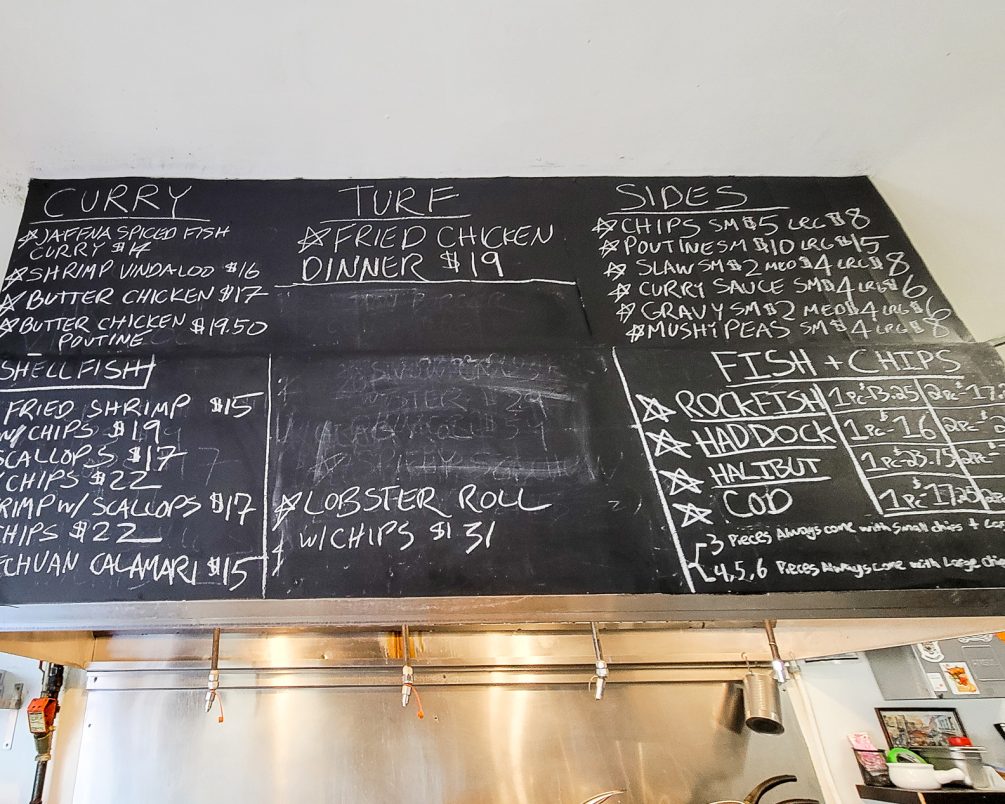 CURRY
JAFFNA SPICED FISH
CURRY $14
SHRIMP VINDALOO $16
BUTTER CHICKEN $17
BUTTER CHICKEN $19.50
POUTINE
TURF
FRIED CHICKEN
DINNER $19
SIDES
CHIPS SM $5 LRG $8
POUTINE SM $10 LRG $15
SLAW SM $2 MED $4 LRG $8
CURRY SAUCE SM $4 LRG $6
GRAVY SM $2 MED $4 LRG $6
MUSHY PEAS SM $4 LRG $8
SHELLFISH
FRIED SHRIMP $15
W/CHIPS $19
SCALLOPS $17
CHIPS $22
RIMP W/ SCALLOPS $17
CHIPS $22
ECHUAN CALAMARI $15
LOBSTER ROLL
W/CHIPS $31
FISH + CHIPS
ROCKFISH 1PC $13.25 2PC $17.
HADDOCK 1PC- 16 2PC-
HALIBUT 1PC-23.75 2PC-
COD 1PC-17.25
3 Pieces Always come with Small chips +
4,5,6 Pieces Always come with Large